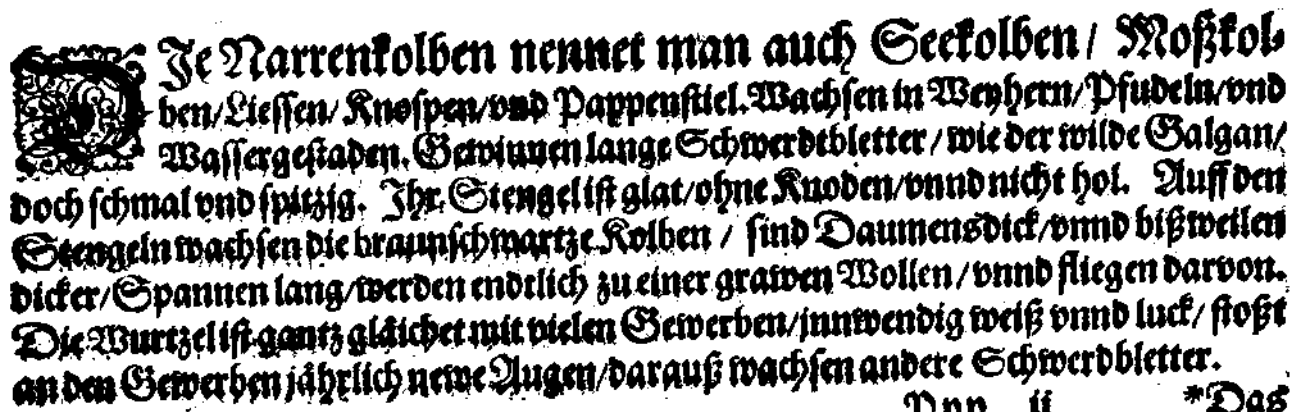 DJe Narrenkolben nennet man auch Seekolben/ Moßkol-
ben/Liessen/Knospen/vnd Pappenstiel. Wachsen in Weyhern/Pfudeln/vnd
Wassergestaden. Gewinnen lange Schwerdtbletter/wie der wilde Galgan/
doch schmal vnd spitzig. Ihr Stengel ist glat/ohne Knoden/vnnd nicht hol. Auff den
Stengeln wachsen die braunschwartze Kolben / sind Daumensdick/vnnd bißweilen
dicker/Spannen lang/werden endtlich zu einer grawen Wollen/vnnd fliegen darvon.
Die Wurtzel ist gantz gläichet mit vielen Gewerben/jnnwendig weiß vnnd luck/ stoßt
an den Gewerben jährlich newe Augen/darauß wachsen andere Schwerdbletter.
Ppp ij *Das